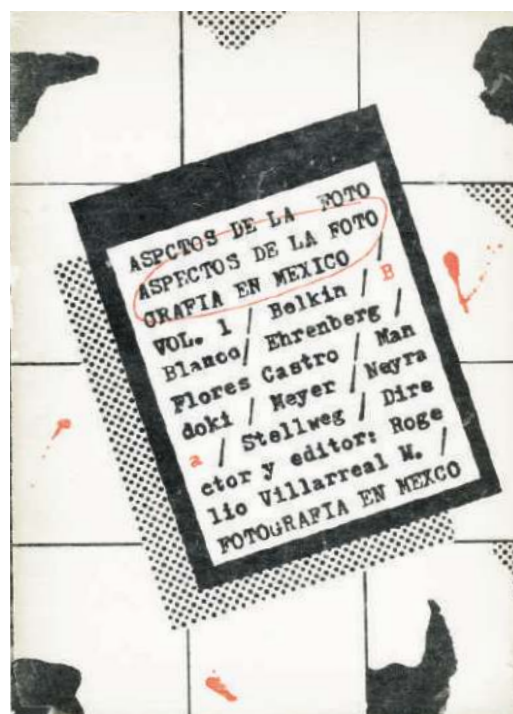 ASPCTOS DE LA FOTO
ASPECTOS DE LA FOTO
GRAFIA EN MEXICO /
VOL. 1 / Belkin / B
Blanco/ Ehrenberg /
Flores Castro / Man
doki / Meyer / Neyra
a / Stellweg / Dire
ctor y editor: Roge
lio Villarreal M. /
FOTOGRAFIA EN MEXCO